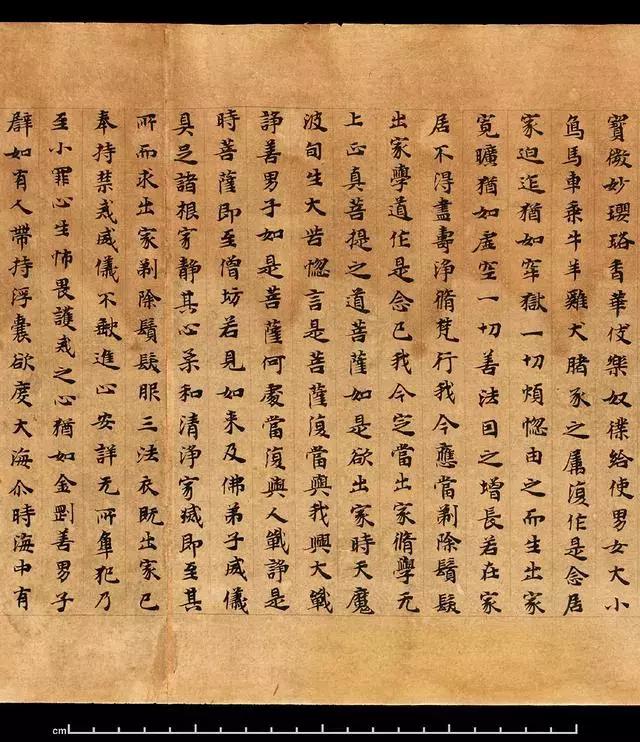 寶微妙瓔珞香華伎樂奴僕給使男女大小
象馬車乘牛羊雞犬猪豕之屬復作是念居
家迫迮猶如牢獄一切煩惱由之而生出家
寬曠猶如虛空一切善法因之增長若在家
居不得盡壽淨脩梵行我今應當剃除鬚髮
出家學道作是念已我今定當出家脩學无
上正真菩提之道菩薩如是欲出家時天魔
波旬生大苦惱言是菩薩復當與我興大戰
諍善男子如是菩薩何處當復興人戰諍是
時菩薩即至僧坊若見如来及佛弟子威儀
具足諸根寂靜其心柔和清淨寂滅即至其
所而求出家剃除鬚髮服三法衣既出家已
奉持禁戒威儀不缺進止安詳无所觸犯乃
至小罪心生怖畏護戒之心猶如金剛善男子
譬如有人帶持浮囊欲度大海尒時海中有
cm